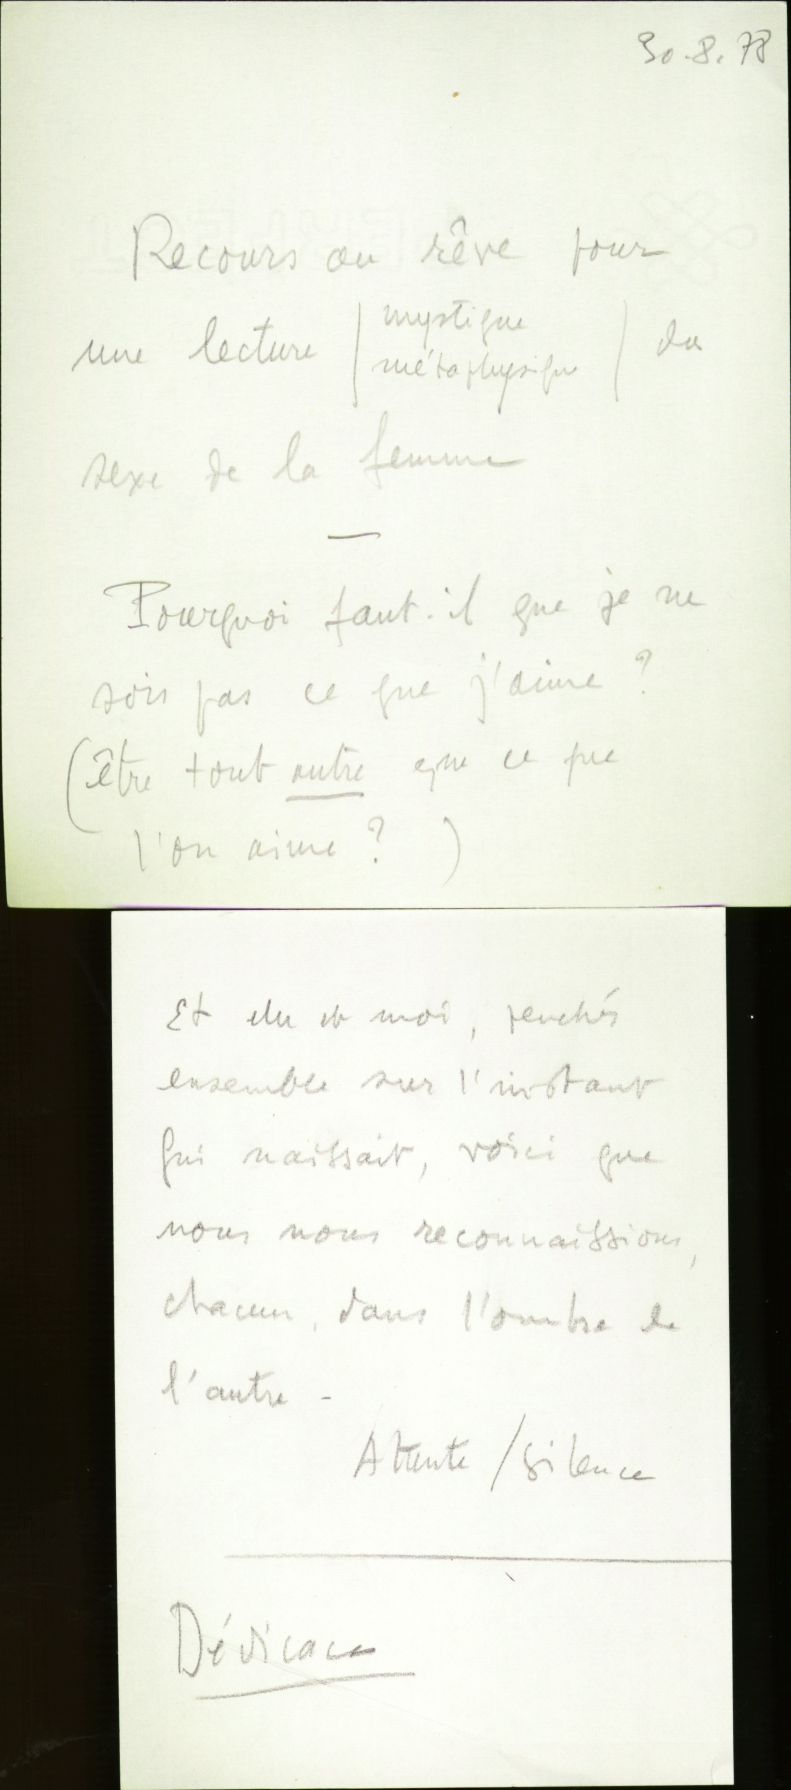 30.8.78
Recours au rêve pour
une lecture (mystique
métaphysique) du
sexe de la femme
—
Pourquoi faut-il que je ne
sois pas ce que j'aime ?
(être tout autre que ce que
l'on aime ? )
Et elle et moi, penchés
ensemble sur l'instant
qui naissait, voici que
nous nous reconnaissions,
chacun, dans l'ombre de
l'autre -
Attente / Silence
Dédicace